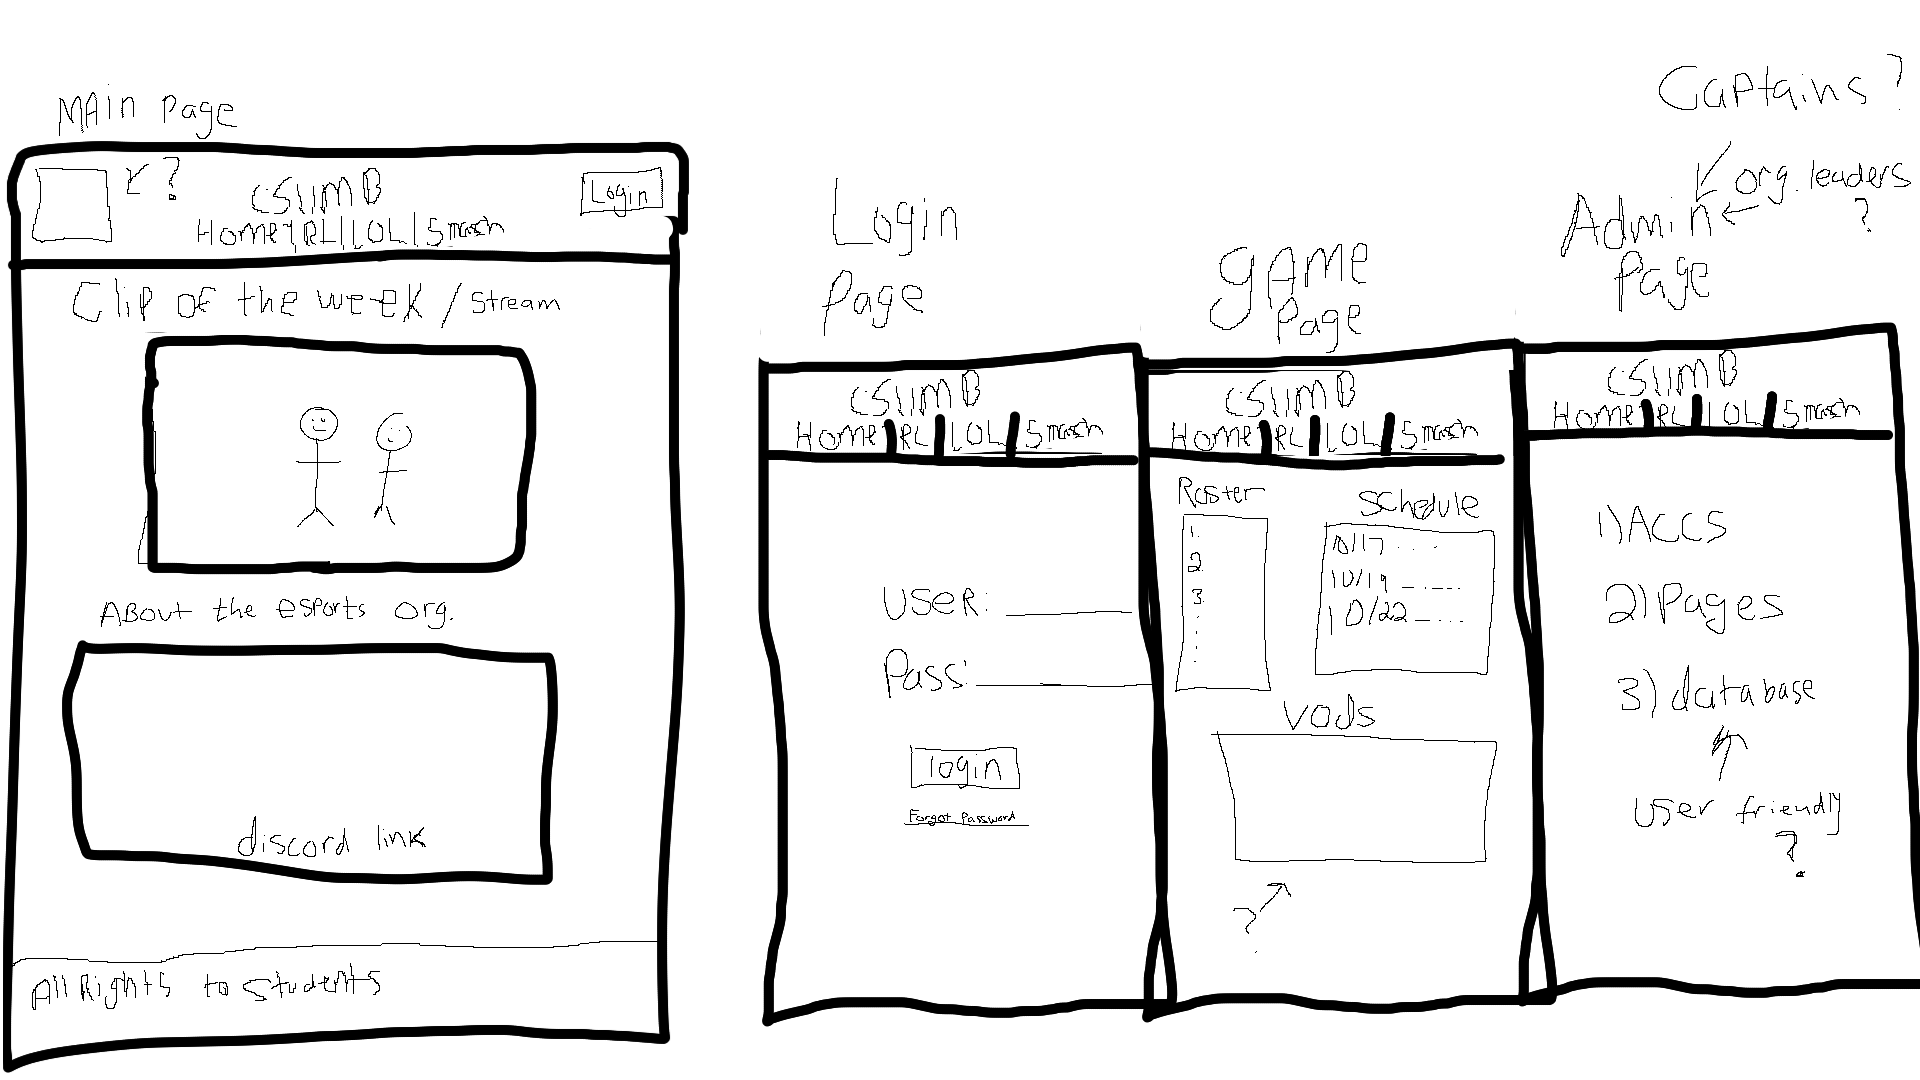 MAin Page
?
CSUMB
Login
Home|RL|LOL|Smash
Clip of the week / Stream
ABout the esports org.
discord link
All Rights to Students
Login
Page
CSUMB
Home|RL|LOL|Smash
USeR:
Pass:
login
Forgot Password
gAMe
Page
CSUMB
Home|RL|LOL|Smash
Roster
1.
2
3.
Schedule
10/17 . . .
10/19 _ . ---
10/22 _ . . . .
Vods
?
Captains ?
org. leaders
?
Admin
Page
CSUMB
Home|RL|LOL|Smash
1) ACCS
2) Pages
3) database
User friendly
?